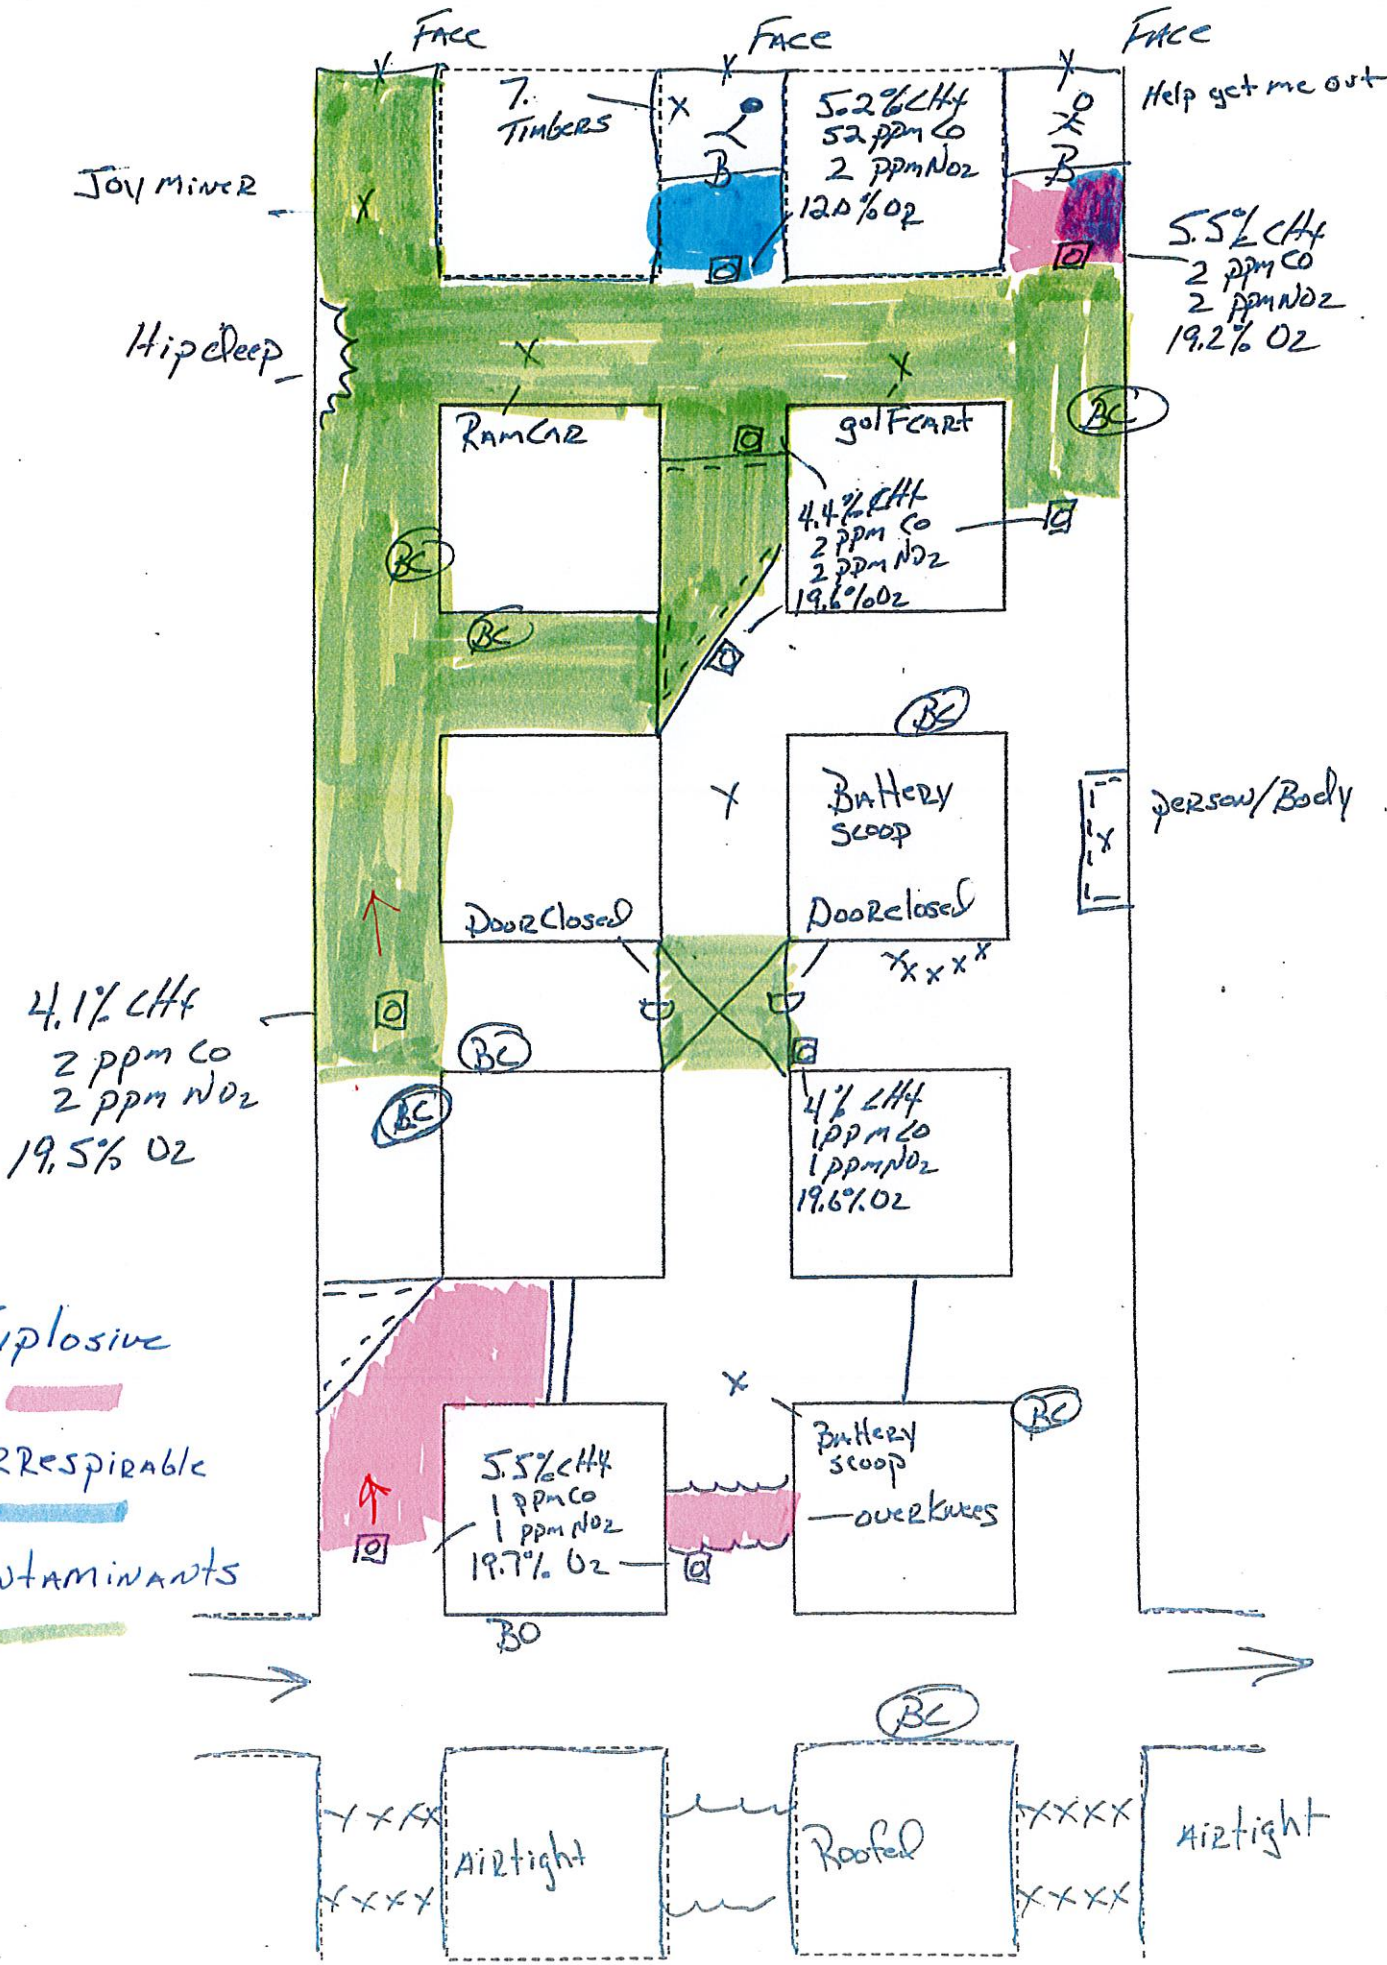 FACE
FACE
FACE
7.
TIMBERS
5.2% CH4
52 ppm CO
2 ppm NO2
12.0% O2
Help get me out
B
B
JOY MINER
5.5% CH4
2 ppm CO
2 ppm NO2
19.2% O2
Hip deep
RAMCAR
golf CART
BC
4.4% CH4
2 ppm CO
2 ppm NO2
19.6% O2
BC
BC
BC
BATTERY
SCOOP
person/Body
Door Closed
Door closed
4.1% CH4
2 ppm CO
2 ppm NO2
19.5% O2
BC
BC
4% CH4
1 ppm CO
1 ppm NO2
19.6% O2
xplosive
RRespirable
NTAMINANTS
5.5% CH4
1 ppm CO
1 ppm NO2
19.7% O2
BATTERY
scoop
over knees
BC
BO
BC
AIRtight
Roofed
AIRtight